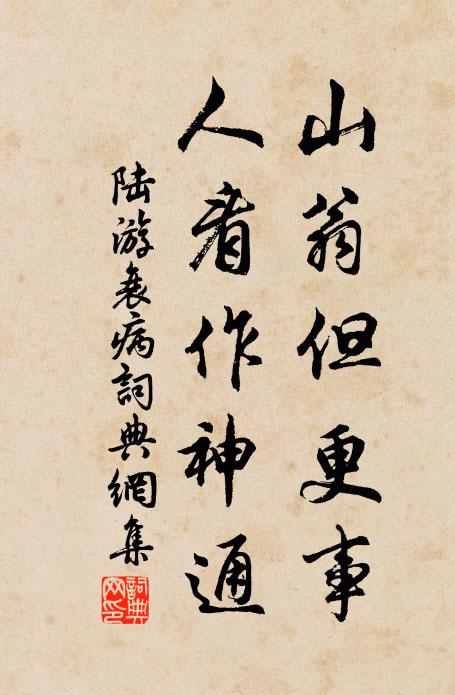 山翁但更事
人看作神通
陆游衰病詞典網集
詞典
网印